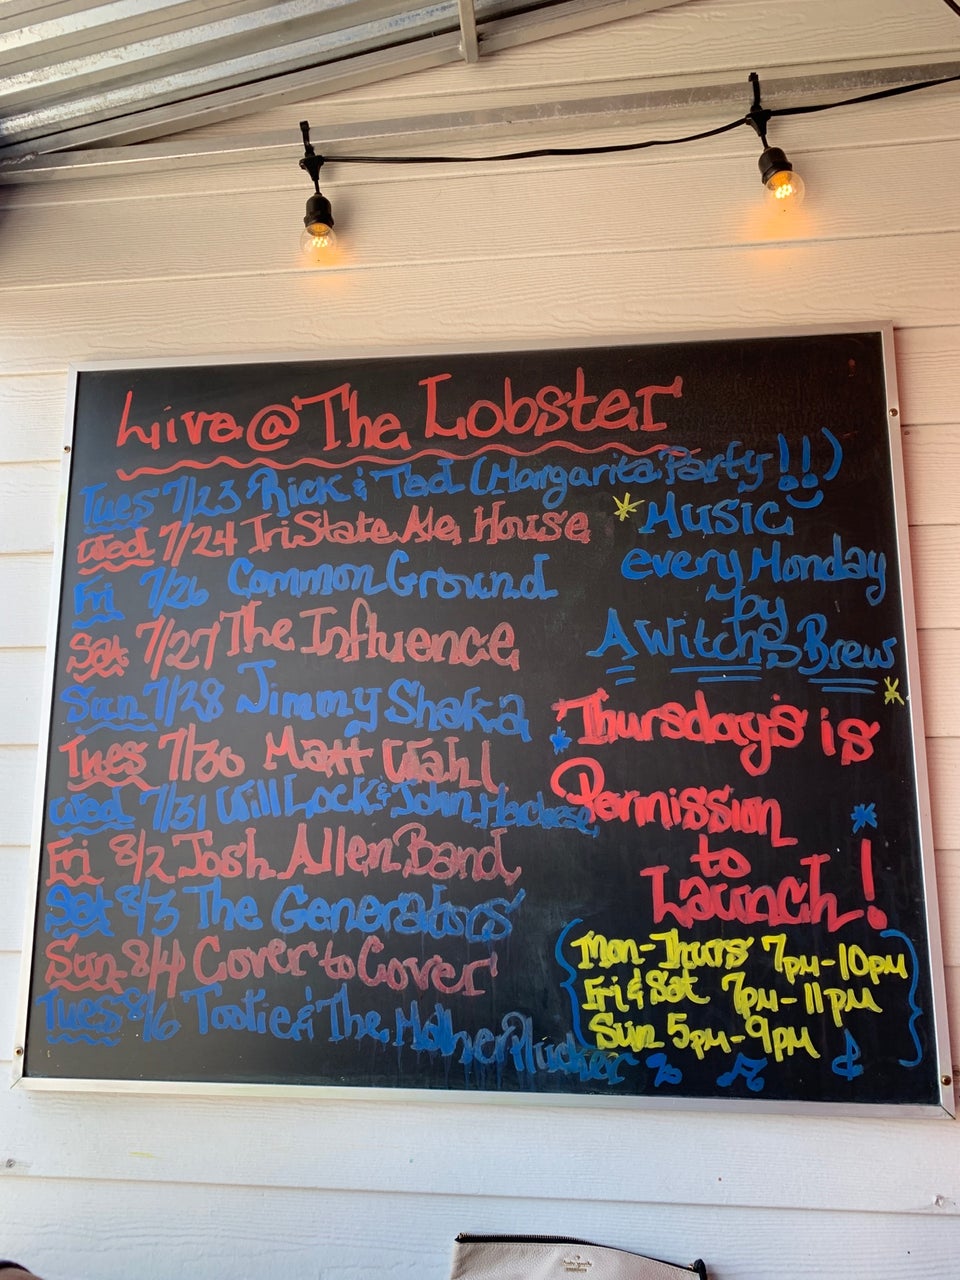 Live @ The Lobster
Tues 7/23 Rick & Ted (Margarita Party!!)
Wed 7/24 TriState Ale House
Fri 7/26 Common Ground
Sat 7/27 The Influence
Sun 7/28 Jimmy Shaka
Tues 7/30 Matt Wahl
Wed 7/31 Will Lock & John
Fri 8/2 Josh Allen Band
Sat 8/3 The Generators
Sun 8/4 Cover to Cover
Tues 8/6 Tootie & The Mother Plucker
Music
every Monday
by
A Witch's Brew
Thursday's is
Permission
to
Launch!
Mon-Thurs 7pm-10pm
Fri & Sat 7pm-11pm
Sun 5pm-9pm
kate spade